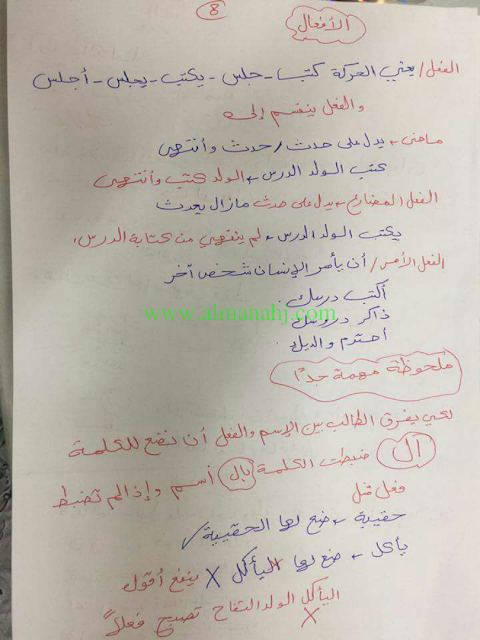 8
الأفعال
الفعل / يعني الحركة كتب - جلس - يكتب - يجلس - أجلس
والفعل ينقسم إلى
ماضى ← يدل على حدث / حدث وأنتهى
كتب الولد الدرس ← الولد كتب وأنتهى
الفعل المضارع ← يدل على حدث مازال يحدث
يكتب الولد الدرس ← لم ينتهي من كتابة الدرس.
الفعل الأمر / أن يأمر الإنسان شخص آخر
أكتب درسك.
www.almanahj.com
ذاكر دروسك
أحترم والديك
ملحوظة مهمة جدًا
لكي يفرق الطالب بين الإسم والفعل أن نضع للكلمة
ال ضبطت الكلمة بال أسم وإذا لم تضبط
فعل مثل
حقيبة ← ضع لها الحقيبة ✓
يأكل ← ضع لها اليأكل X ينفع أقول
اليأكل الولد التفاح تصبح فعلاً
X